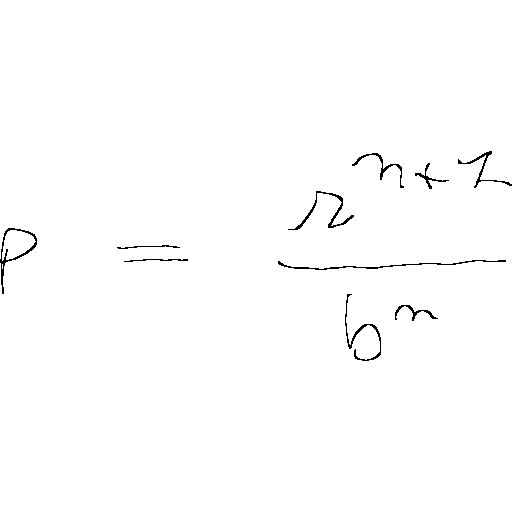 p = \frac{r^{n+1}}{b^n}